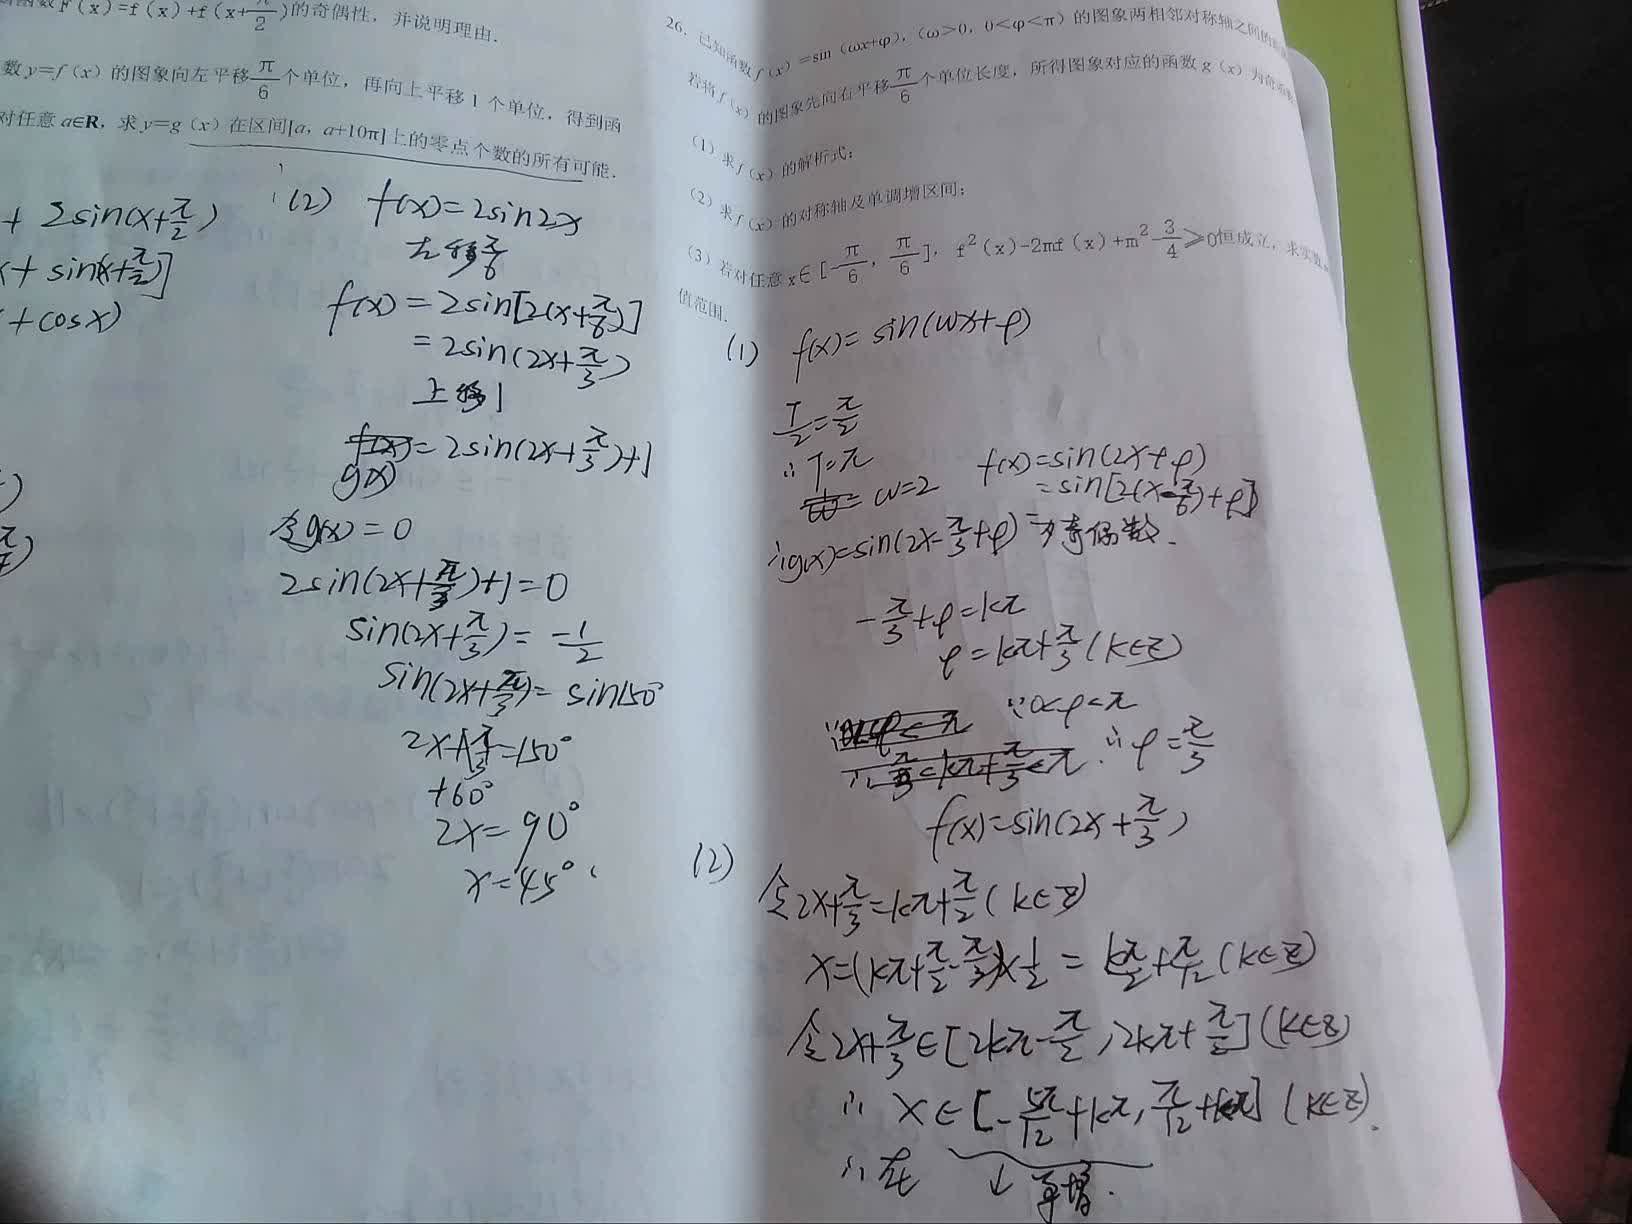 函数F(x)=f(x)+f(x+π/2)的奇偶性,并说明理由.
数y=f(x)的图象向左平移π/6个单位,再向上平移1个单位,得到函
对任意a∈R,求y=g(x)在区间[a,a+10π]上的零点个数的所有可能.
+ 2sin(x+π/2)
x+ sin(x+π/2)]
+cosx)
(2) f(x)=2sin2x
左移π/6
f(x)=2sin[2(x+π/6)]
=2sin(2x+π/3)
上移1
=2sin(2x+π/3)+1
g(x)
令g(x)=0
2sin(2x+π/3)+1=0
sin(2x+π/3)=-1/2
sin(2x+π/3)=sin150°
2x+π/3=150°
+60°
2x=90°
x=45°.
26.已知函数f(x)=sin(ωx+φ),(ω>0,0<φ<π)的图象两相邻对称轴之间的
若将f(x)的图象先向右平移π/6个单位长度,所得图象对应的函数g(x)为奇函数
(1)求f(x)的解析式;
(2)求f(x)的对称轴及单调增区间;
(3)若对任意x∈[-π/6,π/6],f²(x)-2mf(x)+m²-3/4≥0恒成立,求实数
值范围.
(1) f(x)=sin(ωx+φ)
T/2=π/2
∴T=π
ω=2
f(x)=sin(2x+φ)
=sin[2(x-π/6)+φ]
∴g(x)=sin(2x-π/3+φ)为奇偶数.
-π/3+φ=kπ
φ=kπ+π/3(k∈Z)
∵0<φ<π
∴φ=π/3
f(x)=sin(2x+π/3)
(2) 令2x+π/3=kπ+π/2(k∈Z)
x=(kπ+π/2-π/3)×1/2=kπ/2+π/12(k∈Z)
令2x+π/3∈[2kπ-π/2,2kπ+π/2](k∈Z)
∴x∈[-5π/12+kπ,π/12+kπ](k∈Z).
∴在 ↓ 单增.